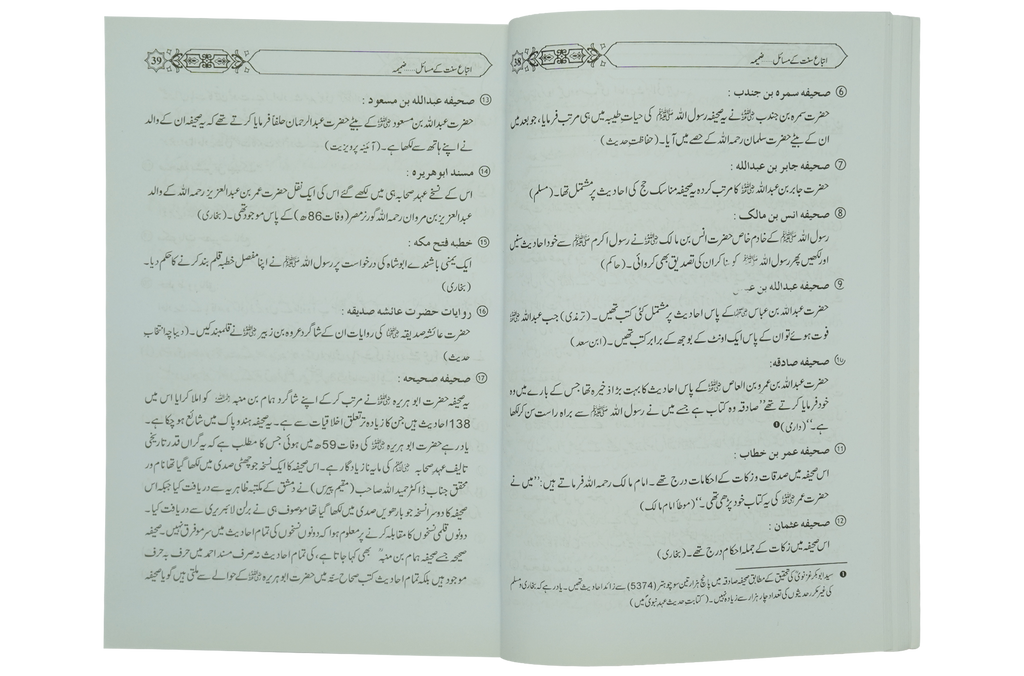 38
اتباع سنت کے مسائل ..... ضمیمہ
⑥ صحیفه سمره بن جندب :
حضرت سمرہ بن جندب ﷜ نے یہ صحیفہ رسول اللہ ﷺ کی حیات طیبہ میں ہی مرتب فرمایا، جو بعد میں
ان کے بیٹے حضرت سلمان رحمہ اللہ کے حصے میں آیا۔ (حفاظت حدیث)
⑦ صحیفه جابر بن عبدالله :
حضرت جابر بن عبداللہ ﷜ کا مرتب کردہ یہ صحیفہ مناسک حج کی احادیث پر مشتمل تھا۔ (مسلم)
⑧ صحیفه انس بن مالک :
رسول اللہ ﷺ کے خادم خاص حضرت انس بن مالک ﷜ نے رسول اکرم ﷺ سے خود احادیث سنیں
اور لکھیں پھر رسول اللہ ﷺ کو سنا کر ان کی تصدیق بھی کروائی۔ (حاکم)
⑨ صحیفه عبدالله بن
حضرت عبداللہ بن عباس ﷜ کے پاس احادیث پر مشتمل کئی کتب تھیں۔ (ترمذی) جب عبداللہ ﷜
فوت ہوئے تو ان کے پاس ایک اونٹ کے بوجھ کے برابر کتب تھیں۔ (ابن سعد)
⑩ صحیفه صادقه:
حضرت عبداللہ بن عمرو بن العاص ﷜ کے پاس احادیث کا بہت بڑا ذخیرہ تھا جس کے بارے میں وہ
خود فرمایا کرتے تھے "صادقہ وہ کتاب ہے جسے میں نے رسول اللہ ﷺ سے براہ راست سن کر لکھا
ہے۔" (دارمی) ❶
⑪ صحیفه عمر بن خطاب :
اس صحیفہ میں صدقات و زکات کے احکامات درج تھے۔ امام مالک رحمہ اللہ فرماتے ہیں: "میں نے
حضرت عمر ﷜ کی یہ کتاب خود پڑھی تھی۔" (موطا امام مالک)
⑫ صحیفه عثمان :
اس صحیفہ میں زکات کے جملہ احکام درج تھے۔ (بخاری)
❶ سید ابوبکر غزنوی کی تحقیق کے مطابق صحیفہ صادقہ میں پانچ ہزار تین سو چوہتر (5374) سے زائد احادیث تھیں۔ یاد رہے کہ بخاری و مسلم
کی غیر مکرر حدیثوں کی تعداد چار ہزار سے زیادہ نہیں۔ (کتابت حدیث عہد نبوی میں)
39
اتباع سنت کے مسائل ..... ضمیمہ
⑬ صحیفه عبدالله بن مسعود :
حضرت عبداللہ بن مسعود ﷜ کے بیٹے حضرت عبدالرحمان حلفا فرمایا کرتے تھے کہ یہ صحیفہ ان کے والد
نے اپنے ہاتھ سے لکھا ہے۔ (آئینہ پرویزیت)
⑭ مسند ابوهریره :
اس کے نسخے عہد صحابہ ہی میں لکھے گئے اس کی ایک نقل حضرت عمر بن عبدالعزیز رحمہ اللہ کے والد
عبدالعزیز بن مروان رحمہ اللہ گورنر مصر (وفات 86ھ) کے پاس موجود تھی۔ (بخاری)
⑮ خطبه فتح مکه :
ایک یمنی باشندے ابوشاہ کی درخواست پر رسول اللہ ﷺ نے اپنا مفصل خطبہ قلم بند کرنے کا حکم دیا۔
(بخاری)
⑯ روایات حضرت عائشه صدیقه :
حضرت عائشہ صدیقہ ﷞ کی روایات ان کے شاگرد عروہ بن زبیر ﷜ نے قلمبند کیں۔ (دیباچہ انتخاب
حدیث)
⑰ صحیفه صحیحه :
یہ صحیفہ حضرت ابوہریرہ ﷜ نے مرتب کر کے اپنے شاگرد ہمام بن منبہ ﷫ کو املا کرایا اس میں
138 احادیث ہیں جن کا زیادہ تر تعلق اخلاقیات سے ہے۔ یہ صحیفہ ہندو پاک میں شائع ہو چکا ہے۔
یاد رہے حضرت ابوہریرہ ﷜ کی وفات 59ھ میں ہوئی جس کا مطلب ہے کہ یہ گراں قدر تاریخی
تالیف عہد صحابہ ﷢ کی مایہ ناز یادگار ہے۔ اس صحیفہ کا ایک نسخہ جو چھٹی صدی میں لکھا گیا تھا نامور
محقق جناب ڈاکٹر حمید اللہ صاحب (مقیم پیرس) نے دمشق کے مکتبہ ظاہریہ سے دریافت کیا جبکہ اس
صحیفہ کا دوسرا نسخہ جو بارہویں صدی میں لکھا گیا تھا موصوف ہی نے برلن لائبریری سے دریافت کیا۔
دونوں قلمی نسخوں کا مقابلہ کرنے پر معلوم ہوا کہ دونوں نسخوں کی تمام احادیث میں سرمو فرق نہیں۔ صحیفہ
صحیحہ جسے صحیفہ ہمام بن منبہؒ بھی کہا جاتا ہے، کی تمام احادیث نہ صرف مسند احمد میں حرف بہ حرف
موجود ہیں بلکہ تمام احادیث کتب صحاح ستہ میں حضرت ابوہریرہ ﷜ کے حوالے سے ملتی ہیں گویا صحیفہ